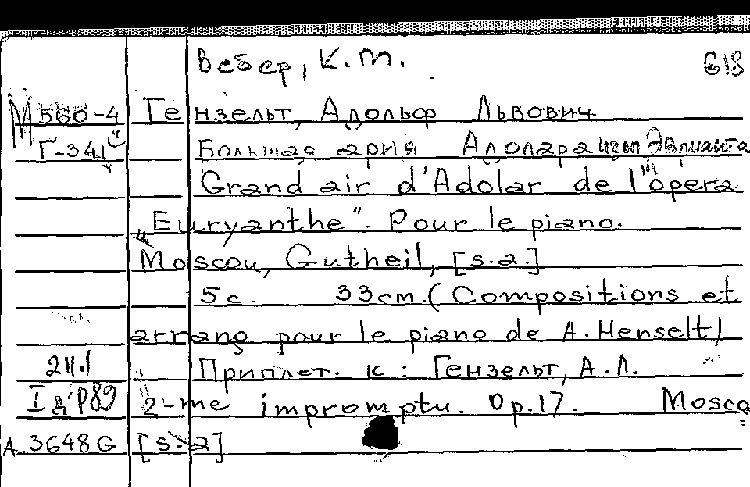 Вебер, К.М. 618
М 560-4 Гензельт, Адольф Львович
Г-341 Большая ария Адолара изъ Эврианта
Grand air d'Adolar de l'opera
„Euryanthe". Pour le piano.
Moscou, Gutheil, [s.a.]
5с. 33cm. (Compositions et
arrang pour le piano de A. Henselt)
Приплет. к: Гензельт, А.Л.
2-me impromptu. Op.17. Mosco
A 3648G [s.a]